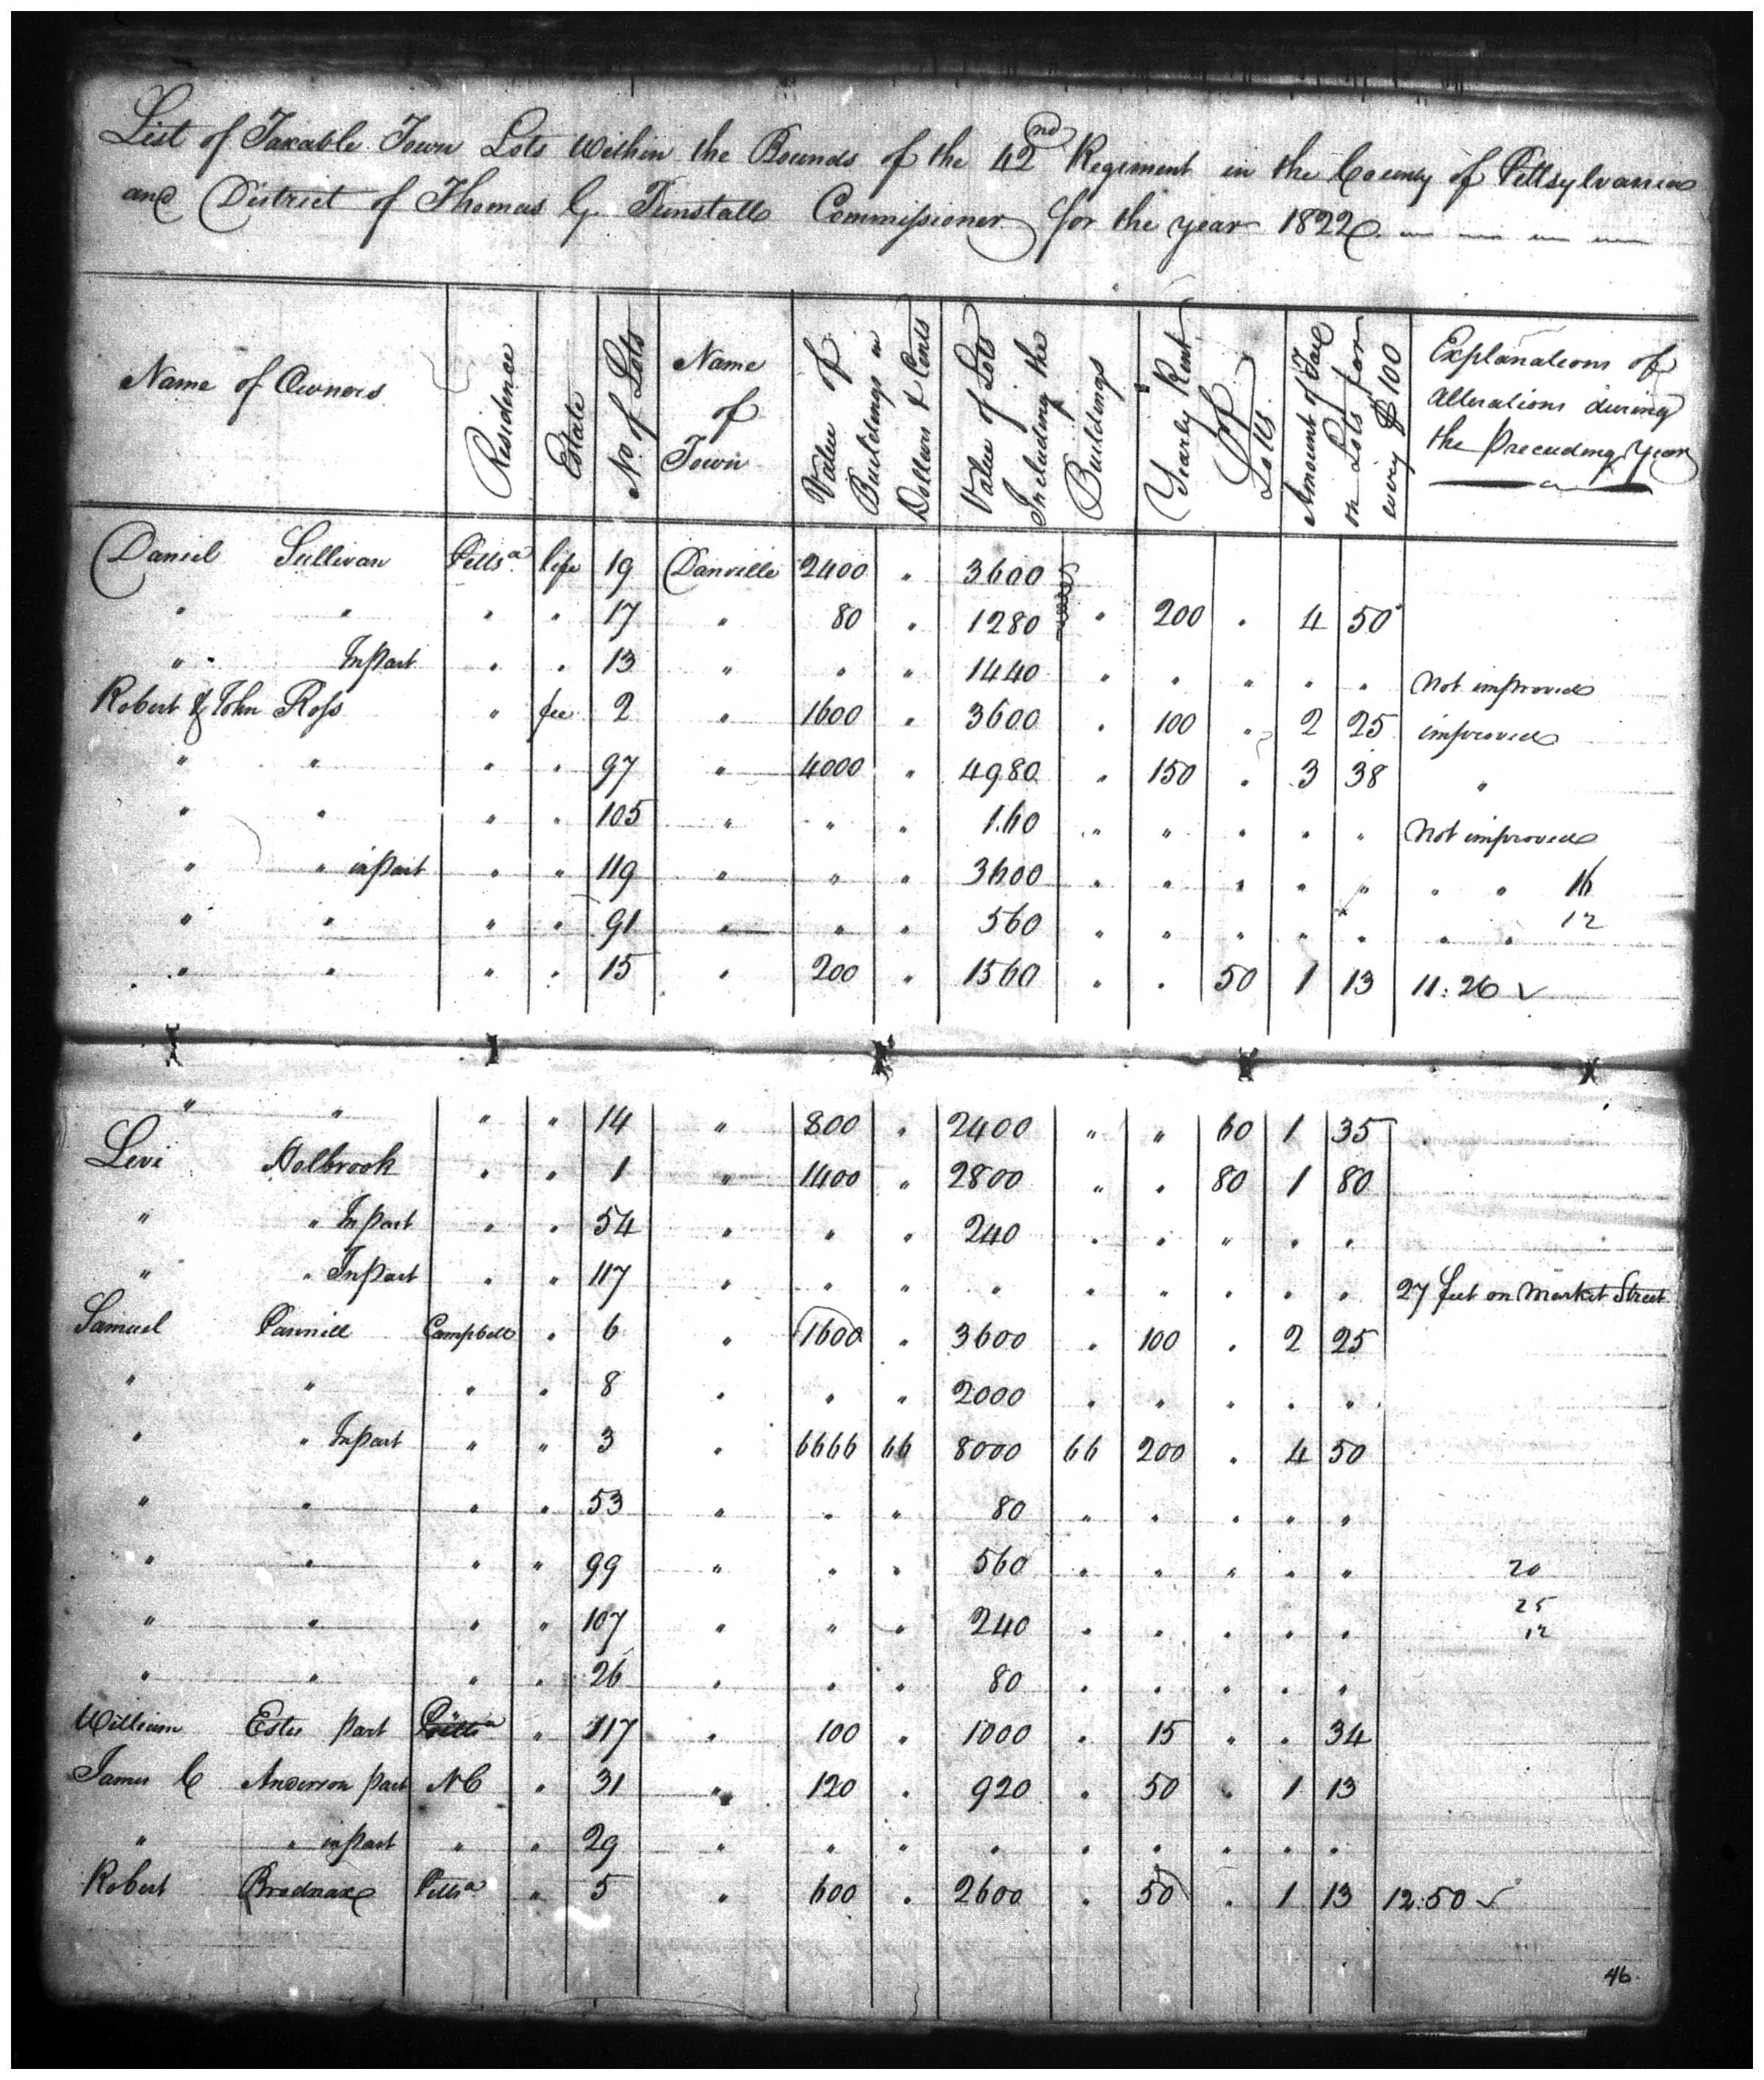 List of Taxable Town Lots Within the Bounds of the 42nd Regiment in the County of Pittsylvania
and District of Thomas G. Tunstall Commissioner for the year 1822
Name of Owners Residence Estate No. of Lots Name of Town Value of Buildings in Dollars & Cents Value of Lots Including the Buildings Yearly Rent of Lotts Amount of Tax on Lots for every $100 Explanations of alterations during the Preceeding Year
Daniel Sullivan Pittsa life 19 Danville 2400 " 3600
" " " " 17 " 80 " 1280 " 200 " 4 50
" Inpart " " 13 " " " 1440 " " " " " Not improved
Robert & John Ross " fee 2 " 1600 " 3600 " 100 " 2 25 improved
" " " " 97 " 4000 " 4980 " 150 " 3 38 "
" " " " 105 " " " 160 " " " " " Not improved
" " inpart " " 119 " " " 3600 " " " " " " " 16
" " " " 91 " " " 560 " " " " " " " 12
" " " " 15 " 200 " 1560 " " 50 1 13 11:26 ✓
" " " " 14 " 800 " 2400 " " 60 1 35
Levi Holbrook " " 1 " 1400 " 2800 " " 80 1 80
" " Inpart " " 54 " " " 240 " " " " "
" " Inpart " " 117 " " " " " " " " " 27 feet on Market Street
Samuel Pannill Campbell " 6 " 1600 " 3600 " 100 " 2 25
" " " " 8 " " " 2000 " " " " "
" " Inpart " " 3 " 6666 66 8000 66 200 " 4 50
" " " " 53 " " " 80 " " " " "
" " " " 99 " " " 560 " " " " " 20
" " " " 107 " " " 240 " " " " " 25
12
" " " " 26 " " " 80 " " " " "
William Estes part Pittsa " 117 " 100 " 1000 " 15 " " 34
James C Anderson part NC " 31 " 120 " 920 " 50 " 1 13
" " inpart " " 29 " " " " " " " " "
Robert Brodnax Pittsa " 5 " 600 " 2600 " 50 " 1 13 12:50 ✓
46